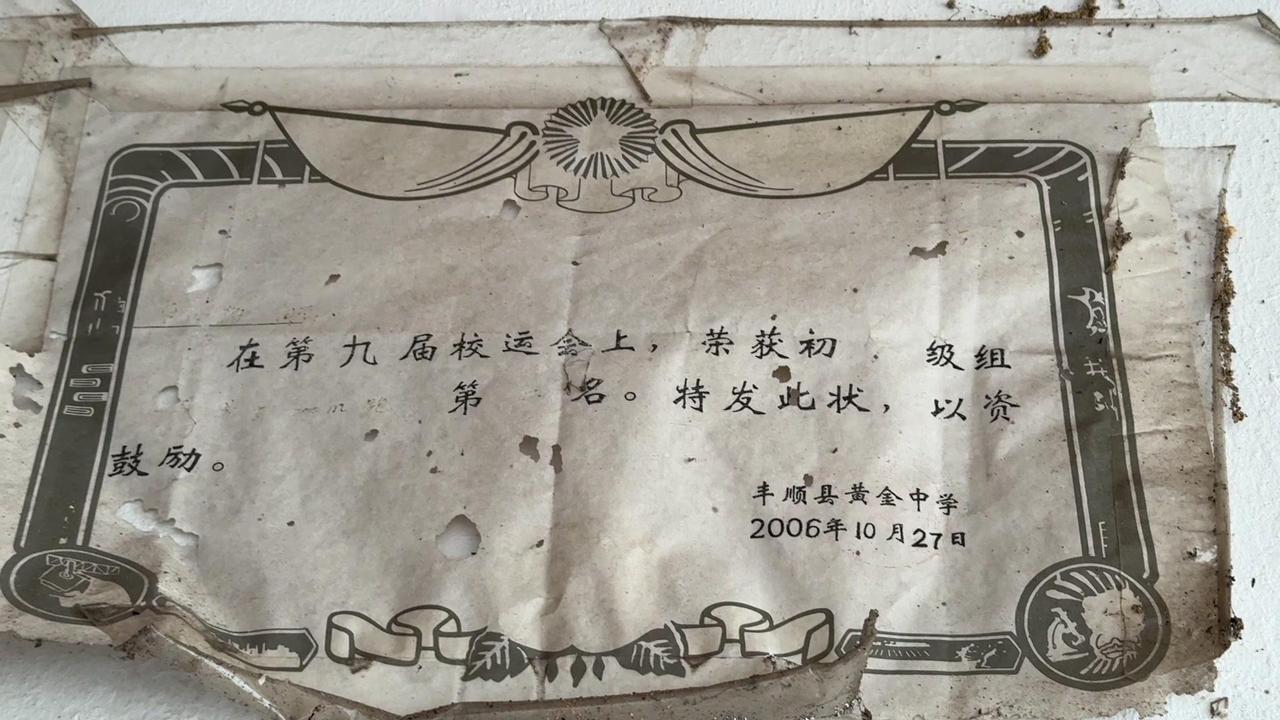 在第九届校运会上，荣获初 级组
第 名。特发此状，以资
鼓励。
丰顺县黄金中学
2006年10月27日